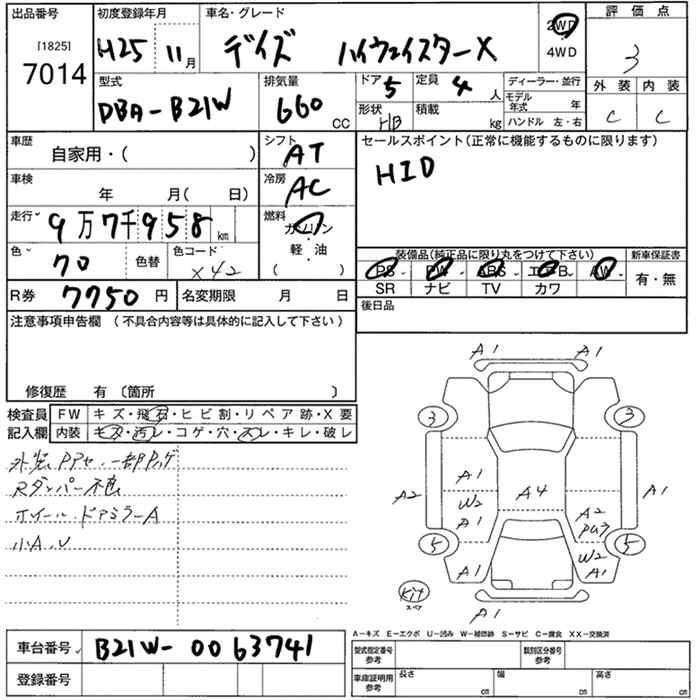 出品番号
[1825]
7014
初度登録年月
H25 11月
車名・グレード
デイズ ハイウェイスターX
2WD
4WD
評価点
3
型式
DBA-B21W
排気量
660 CC
ドア 5
定員 4 人
形状 HB
積載 kg
ディーラー・並行
モデル年式 年
ハンドル 左・右
外装 内装
C C
車歴
自家用・( )
シフト
AT
セールスポイント(正常に機能するものに限ります)
HID
車検
年 月( 日)
冷房
AC
走行
9万7千958 km
燃料
ガソリン
・
軽・油
( )
色
70
色替
色コード
X42
装備品(純正品に限り丸をつけて下さい)
新車保証書
PS PW ABS エアB AW
SR ナビ TV カワ
有・無
R券 7750 円
名変期限 月 日
後日品
注意事項申告欄 (不具合内容等は具体的に記入して下さい)
修復歴 有 〔箇所 〕
検査員
記入欄
FW キズ・飛石・ヒビ割・リペア跡・X要
内装 キズ・汚レ・コゲ・穴・スレ・キレ・破レ
ホイール・ドアミラーA
小A、U
A1 A1
3 3
A1
A2 W2 A4 A1
A1 A2
5 5
W2
A1 A1
Kit
スペア
A1
A-キズ E-エクボ U-凹み W-補修跡 S-サビ C-腐食 XX-交換済
車台番号 B21W-0063741
登録番号
型式指定番号
参考
類別区分番号
参考
車庫証明用
参考
長さ cm 幅 cm 高さ cm